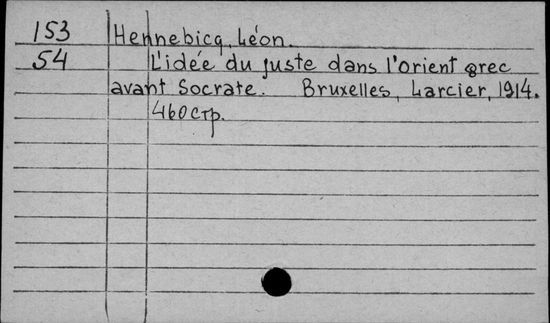 153 Hennebicq, Léon.
54 L'idée du juste dans l'Orient grec
avant Socrate. Bruxelles, Larcier, 1914.
460 стр.